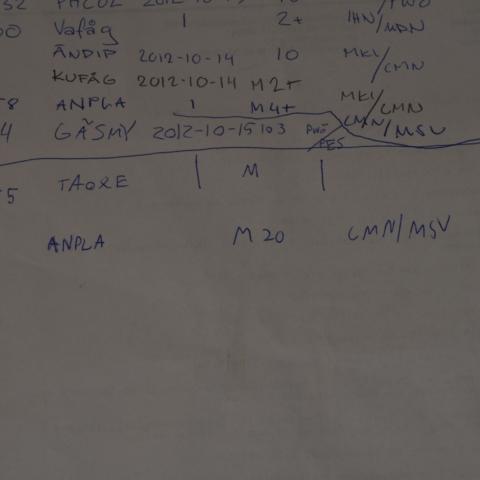 Vafåg 1 2+ IHN/MDN
ÄNDIP 2012-10-14 10 MKL/CMN
KUFÅG 2012-10-14 M2+
ANPLA 1 M4+ MKL/CMN
4 GÄSMY 2012-10-15 103 CMN/MSV
5 TAQRE | M |
ANPLA M 20 CMN/MSV